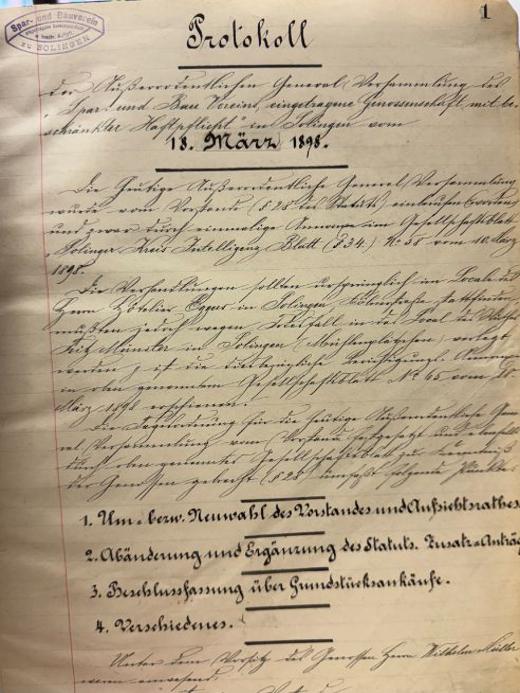 1
Spar- und Bauverein
zu SOLINGEN
Protokoll
der Außerordentlichen General-Versammlung des
"Spar- und Bau-Verein, eingetragene Genossenschaft mit be-
schränkter Haftpflicht" in Solingen vom
18. März 1898.
Die heutige Außerordentliche General-Versammlung
wurde vom Vorstande (§ 28 des Statuts) einberufen
und zwar durch einmalige Annonce im Gesellschaftsblatt
Solinger Kreis Intelligenz Blatt (§ 34.) No 58 vom 10. März
1898.
Die Verhandlungen sollten ursprünglich im Locale des
Herrn Hôtelier Eggers in Solingen, Kölnerstraße stattfinden,
mußten jedoch wegen Todesfall in das Local des
Fritz Münster in Solingen verlegt
werden, ist die diesbezügliche Berichtigungs-Annonce
in oben genanntem Gesellschaftsblatt No 65 vom 18.
März 1898 erschienen.
Die Tagesordnung für die heutige Außerordentliche Gene-
ral-Versammlung vom Vorstande festgesetzt und ebenfalls
durch oben genanntes Gesellschaftsblatt zur Kenntniß
der Genossen gebracht (§ 28) umfaßt folgende Punkte:
1. Um- bezw. Neuwahl des Vorstandes und Aufsichtsrathes
2. Abänderung und Ergänzung des Statuts. Zusatz-Anträg
3. Beschlussfassung über Grundstücksankäufe.
4. Verschiedenes.
Unter dem Vorsitz des Genossen Herrn Wilhelm Müller
waren anwesend